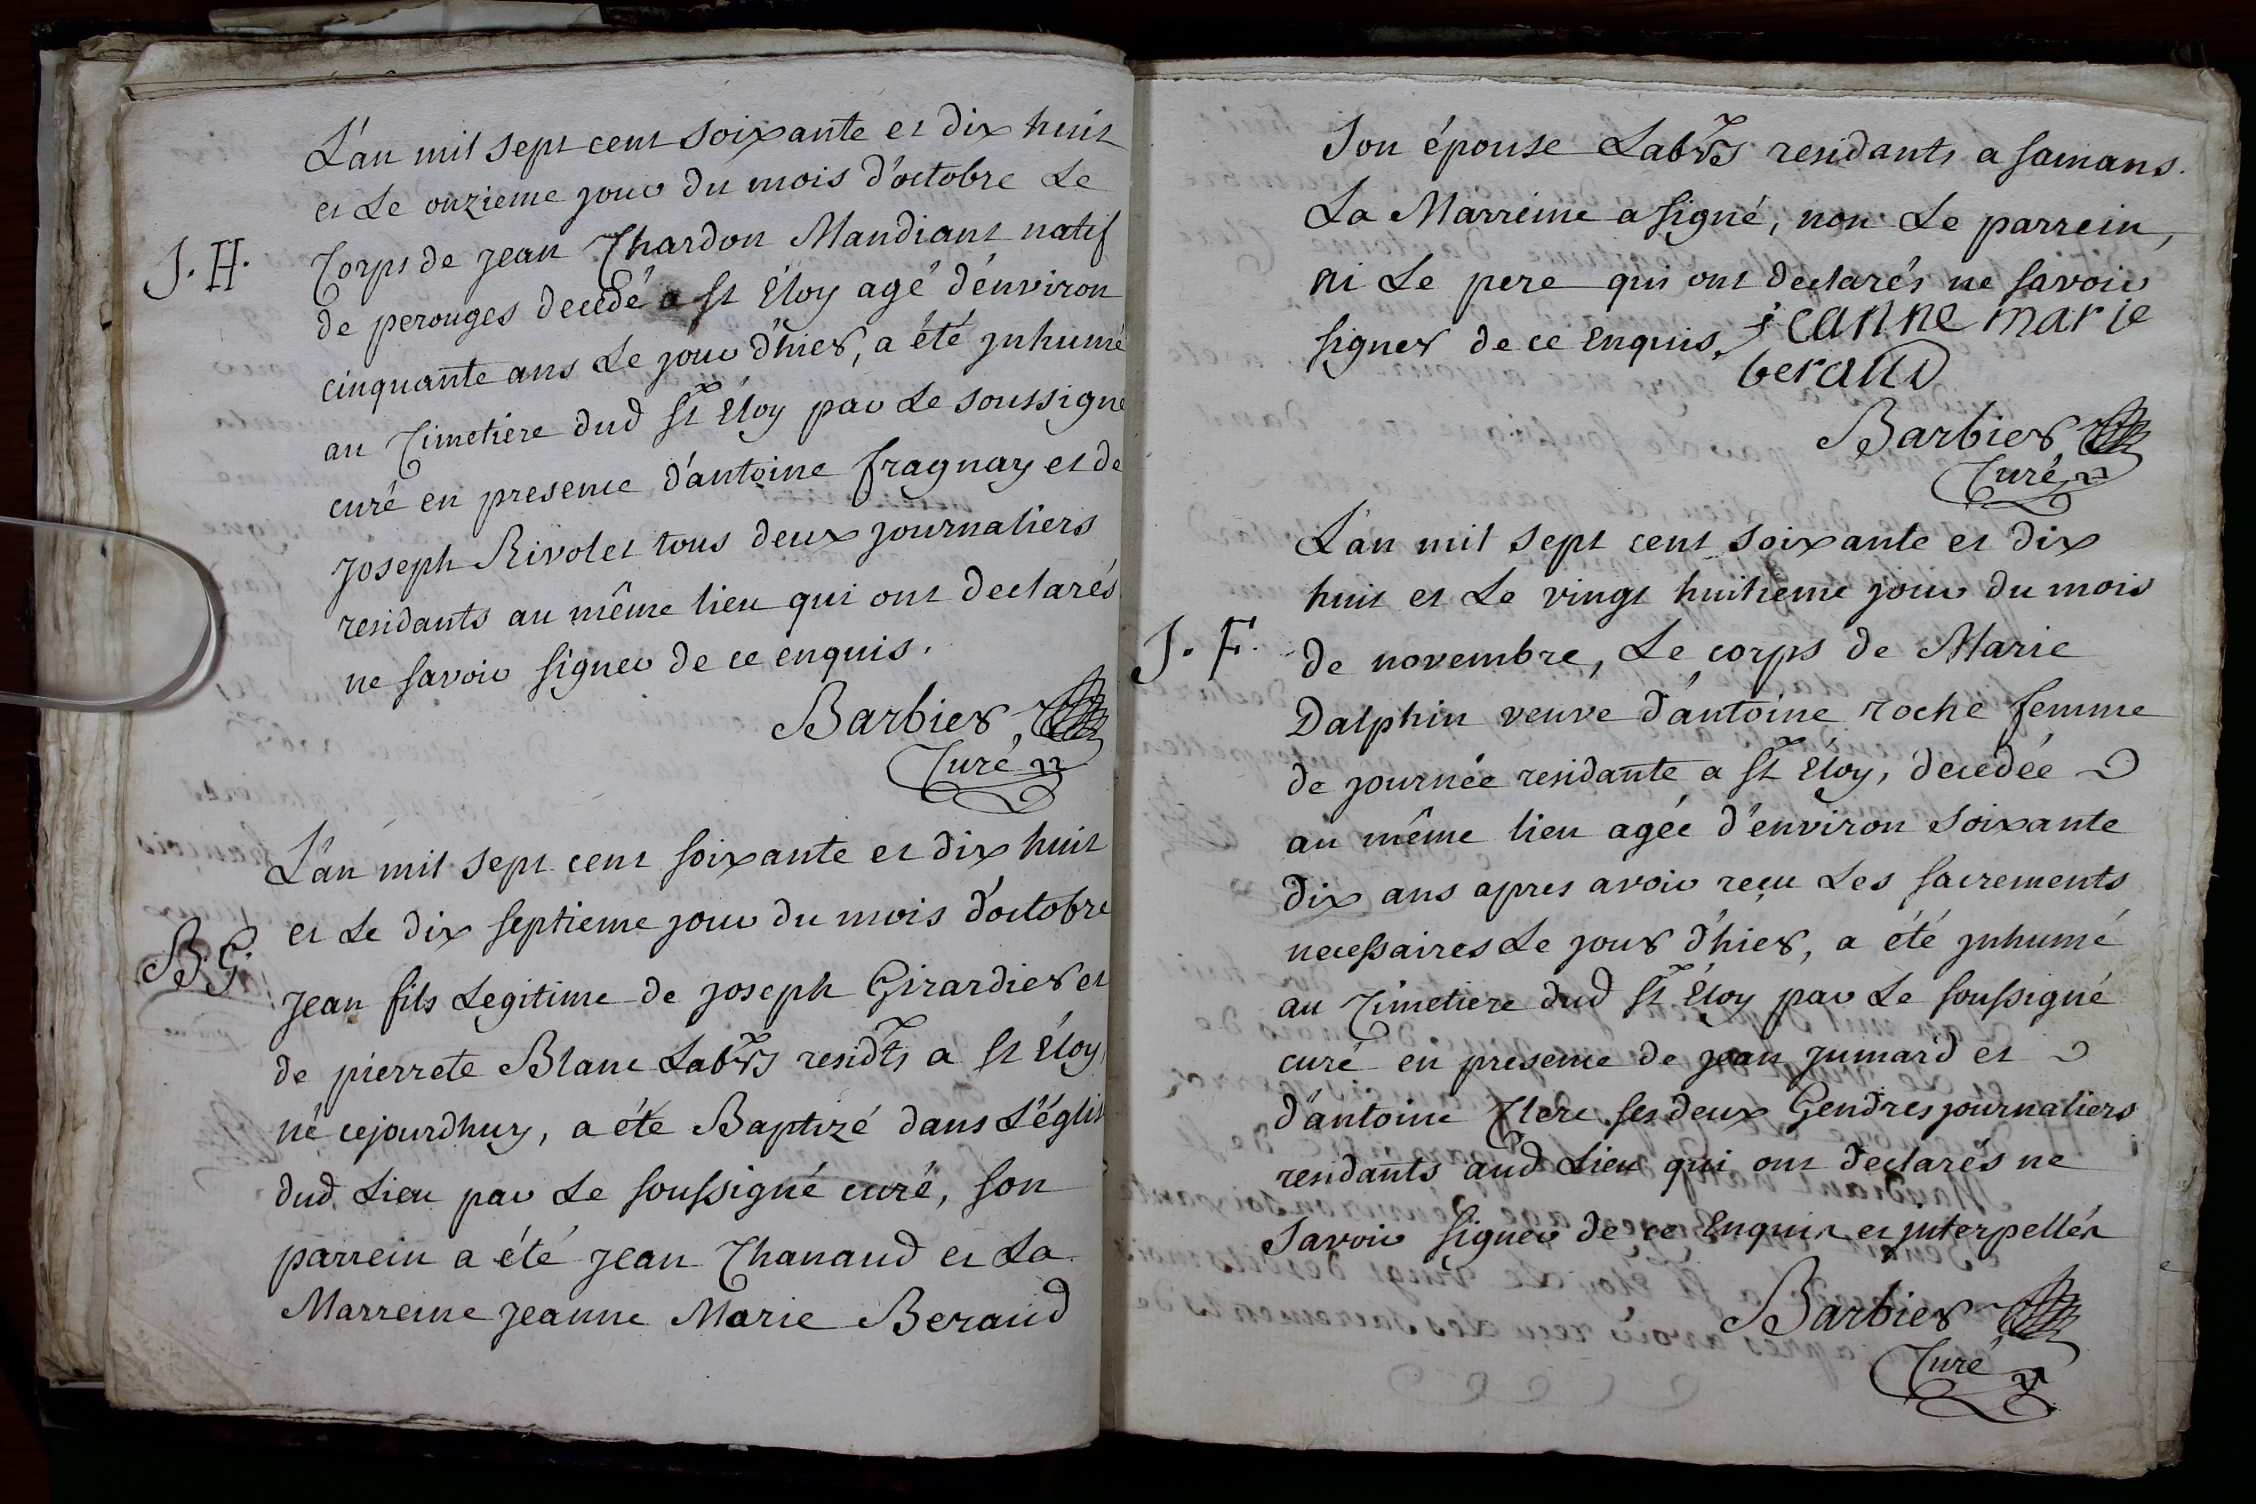 L'an mil sept cent soixante et dix huit
et Le onzieme jour du mois d'octobre Le
J. H.
Corps de jean Chardon Mandiant natif
de perouges decedé a St Éloy agé d'environ
cinquante ans Le jour d'hier, a été jnhumé
au Cimetiere dud St Éloy par Le soussigné
curé en presence d'antoine fragnay et de
joseph Rivolet tous deux journaliers
residants au même lieu qui ont declarés
ne savoir signer de ce enquis.
Barbier
Curé
L'an mil sept cent soixante et dix huit
et Le dix septieme jour du mois d'octobre
B. G.
jean fils Legitime de joseph Girardier et
de pierrete Blanc Labrs residts a St Éloy
né cejourdhuy, a éte Baptizé dans L'églis
dud Lieu par Le soussigné curé, son
parrein a été jean Chanaud et La
Marreine jeanne Marie Beraud
Son épouse Labrs residants a samans.
La Marreine a signé, non Le parrein,
ni Le pere qui ont declarés ne savoir
signer de ce Enquis. jeanne marie
beraud
Barbier
Curé
L'an mil sept cent soixante et dix
huit et Le vingt huitieme jour du mois
J. F.
de novembre, Le corps de Marie
Dalphin veuve d'antoine roche femme
de journée residante a St Éloy, decedée
au même lieu agée d'environ soixante
dix ans apres avoir reçu Les sacrements
necessaires Le jour d'hier, a été jnhumé
au Cimetiere dud St Éloy par Le soussigné
curé en presence de jean jumard et
d'antoine Clere ses deux Gendres journaliers
residants aud Lieu qui ont declarés ne
savoir signer de ce Enquis et jnterpellés
Barbier
Curé